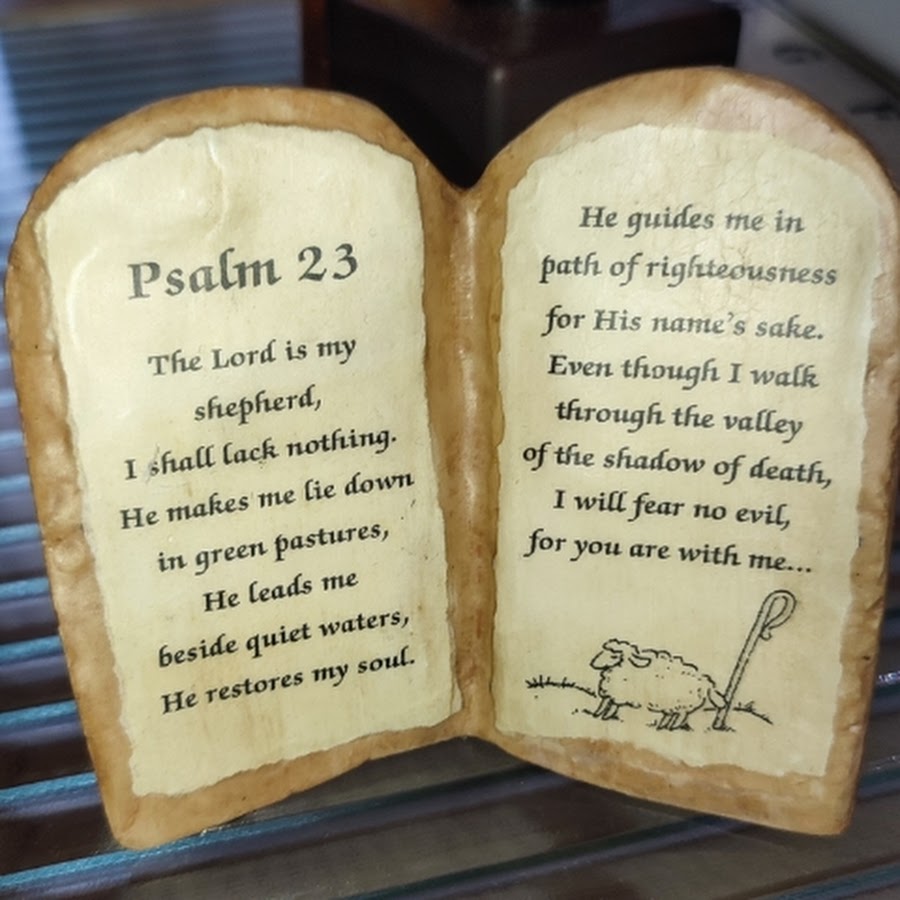 Psalm 23
The Lord is my
shepherd,
I shall lack nothing.
He makes me lie down
in green pastures,
He leads me
beside quiet waters,
He restores my soul.
He guides me in
path of righteousness
for His name's sake.
Even though I walk
through the valley
of the shadow of death,
I will fear no evil,
for you are with me...